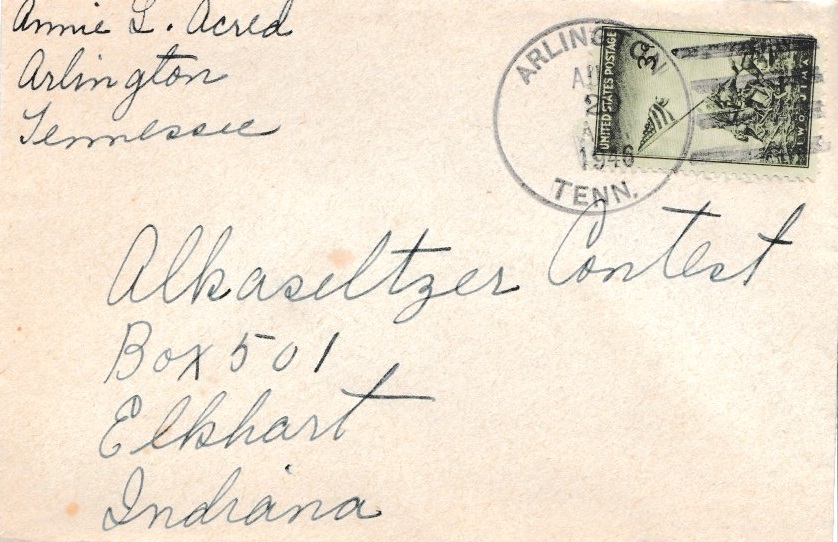 Annie L. Acred
Arlington
Tennessee
ARLINGTON
2
1946
TENN.
UNITED STATES POSTAGE
3¢
IWO JIMA
Alkaseltzer Contest
Box 501
Elkhart
Indiana